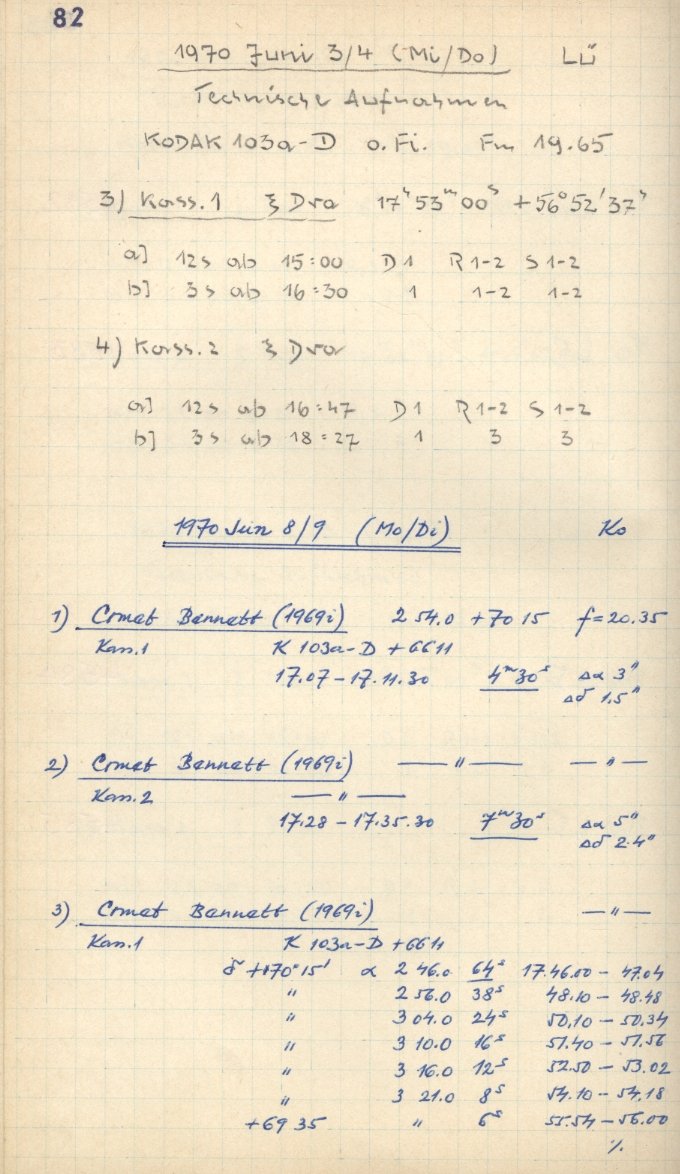 82
1970 Juni 3/4 (Mi/Do) LÜ
Technische Aufnahmen
KODAK 103a-D o.Fi. Fm 19.65
3) Kass.1 ξ Dra 17ʰ53ᵐ00ˢ +56°52'37"
a] 12s ab 15:00 D1 R1-2 S1-2
b] 3s ab 16:30 1 1-2 1-2
4) Kass.2 ξ Dra
a] 12s ab 16:47 D1 R1-2 S1-2
b] 3s ab 18:27 1 3 3
1970 Jun 8/9 (Mo/Di) Ko
1) Comet Bennett (1969i) 2 54.0 +70 15 f=20.35
Kass.1 K 103a-D + GG11
17.07 – 17.11.30 4ᵐ30ˢ Δα 3"
Δδ 1.5"
2) Comet Bennett (1969i) — " — — " —
Kass.2 — " —
17.28 – 17.35.30 7ᵐ30ˢ Δα 5"
Δδ 2.4"
3) Comet Bennett (1969i) — " —
Kass.1 K 103a-D + GG11
δ +70°15' α 2 46.0 64ˢ 17.46.00 – 47.04
" 2 56.0 38ˢ 48.10 – 48.48
" 3 04.0 24ˢ 50.10 – 50.34
" 3 10.0 16ˢ 51.40 – 51.56
" 3 16.0 12ˢ 52.50 – 53.02
" 3 21.0 8ˢ 54.10 – 54.18
+69 35 " 6ˢ 55.54 – 56.00
·/.